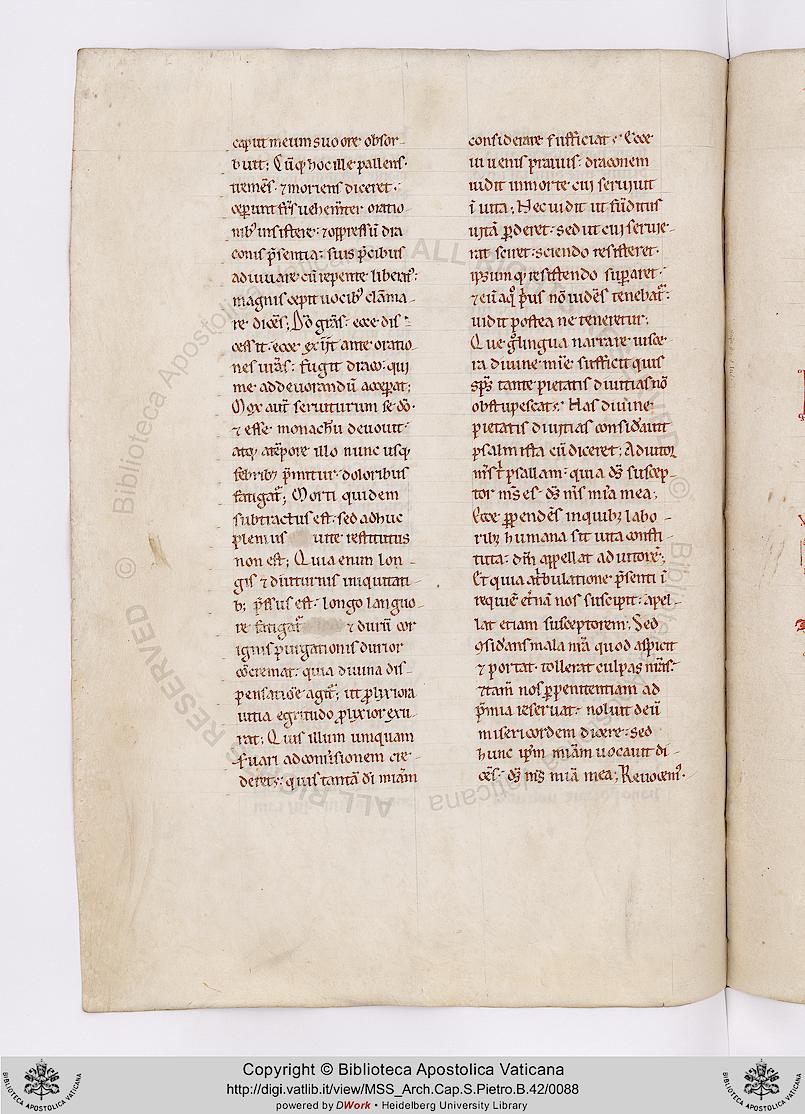 caput meum suo ore obsor-
buit; Cūq; hoc ille pallens·
tremēs· ⁊ moriens diceret·
ceperunt frs̄ uehem̄ter oratio-
nibꝰ insistere· ⁊ oppressū dra
conis p̄sentia· suis p̄cibus
adiuuare cū repente liberatꝰ·
magnis cepit uocibꝰ clāma-
re dicēs; Dō grās· ecce dis-
cessit· ecce exiit ante oratio
nes urās· fugit draco· qui
me ad deuorandū acceperat;
Mox aut̄ seruiturum se dō·
⁊ esse monachū deuouit·
atq; a tēpore illo nunc usq;
febribꝰ p̄mitur· doloribus
fatigat᷑; Morti quidem
subtractus est· sed adhuc
plenius uite restitutus
non est; Quia enim lon-
gis ⁊ diuturnis iniquitati-
b; p̄ssus est· longo languo-
re fatigat᷑ ⁊ durū cor
ignis purgationis durior
cōcremat· quia diuina dis-
pensatiōe agit᷑; ut prolixiora
uitia egritudo prolixior exu-
rat; Quis illum umquam
s̄uari ad conuersionem cre-
deret; quis tantā di miā̄m
considerare sufficiat; Ecce
iuuenis prauus· draconem
uidit in morte cui seruiuit
ī uita; Nec uidit ut fūditus
uitā perderet· sed ut cui seruie-
rat sciret· sciendo resisteret·
ipsumq; resistendo superaret·
⁊ eū a quo prius nō uidēs tenebat᷑·
uidit postea ne teneretur;
Que g̊ lingua narrare uisce-
ra diuine mīe sufficit quis
sp̄s tante pietatis diuitias nō
obstupescat; Has diuine
pietatis diuitias considerauit
psalmista cū diceret; Adiutor
m̄s t̄ psallam· quia ds̄ suscep-
tor m̄s es· ds̄ m̄s mīa mea;
Ecce perpendēs in quibꝫ labo-
ribꝫ humana sit uita consti
tuta· dn̄m appellat adiutorē;
Et quia a tribulatione p̄senti ī
requiē etnā nos suscipit· apel-
lat etiam susceptorem; Sed
ꝯsiderans mala nr̄a quod aspicit
⁊ portat· tollerat culpas nr̄as·
⁊ tam̄ nos per penitentiam ad
p̄mia reseruat· noluit deū
misericordem dicere· sed
hunc ipsm̄ miām uocauit di-
cēs· ds̄ m̄s mīa mea; Reuocemꝰ·
Copyright © Biblioteca Apostolica Vaticana
http://digi.vatlib.it/view/MSS_Arch.Cap.S.Pietro.B.42/0088
powered by DWork • Heidelberg University Library